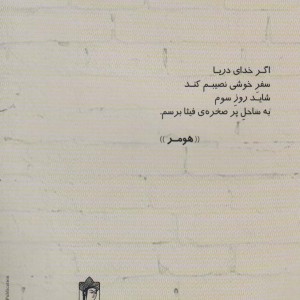 اگر خدای دریا
سفرِ خوشی نصیبم کند
شاید روزِ سوم
به ساحلِ پُر صخره‌ی فیثا برسم.
((هومر))